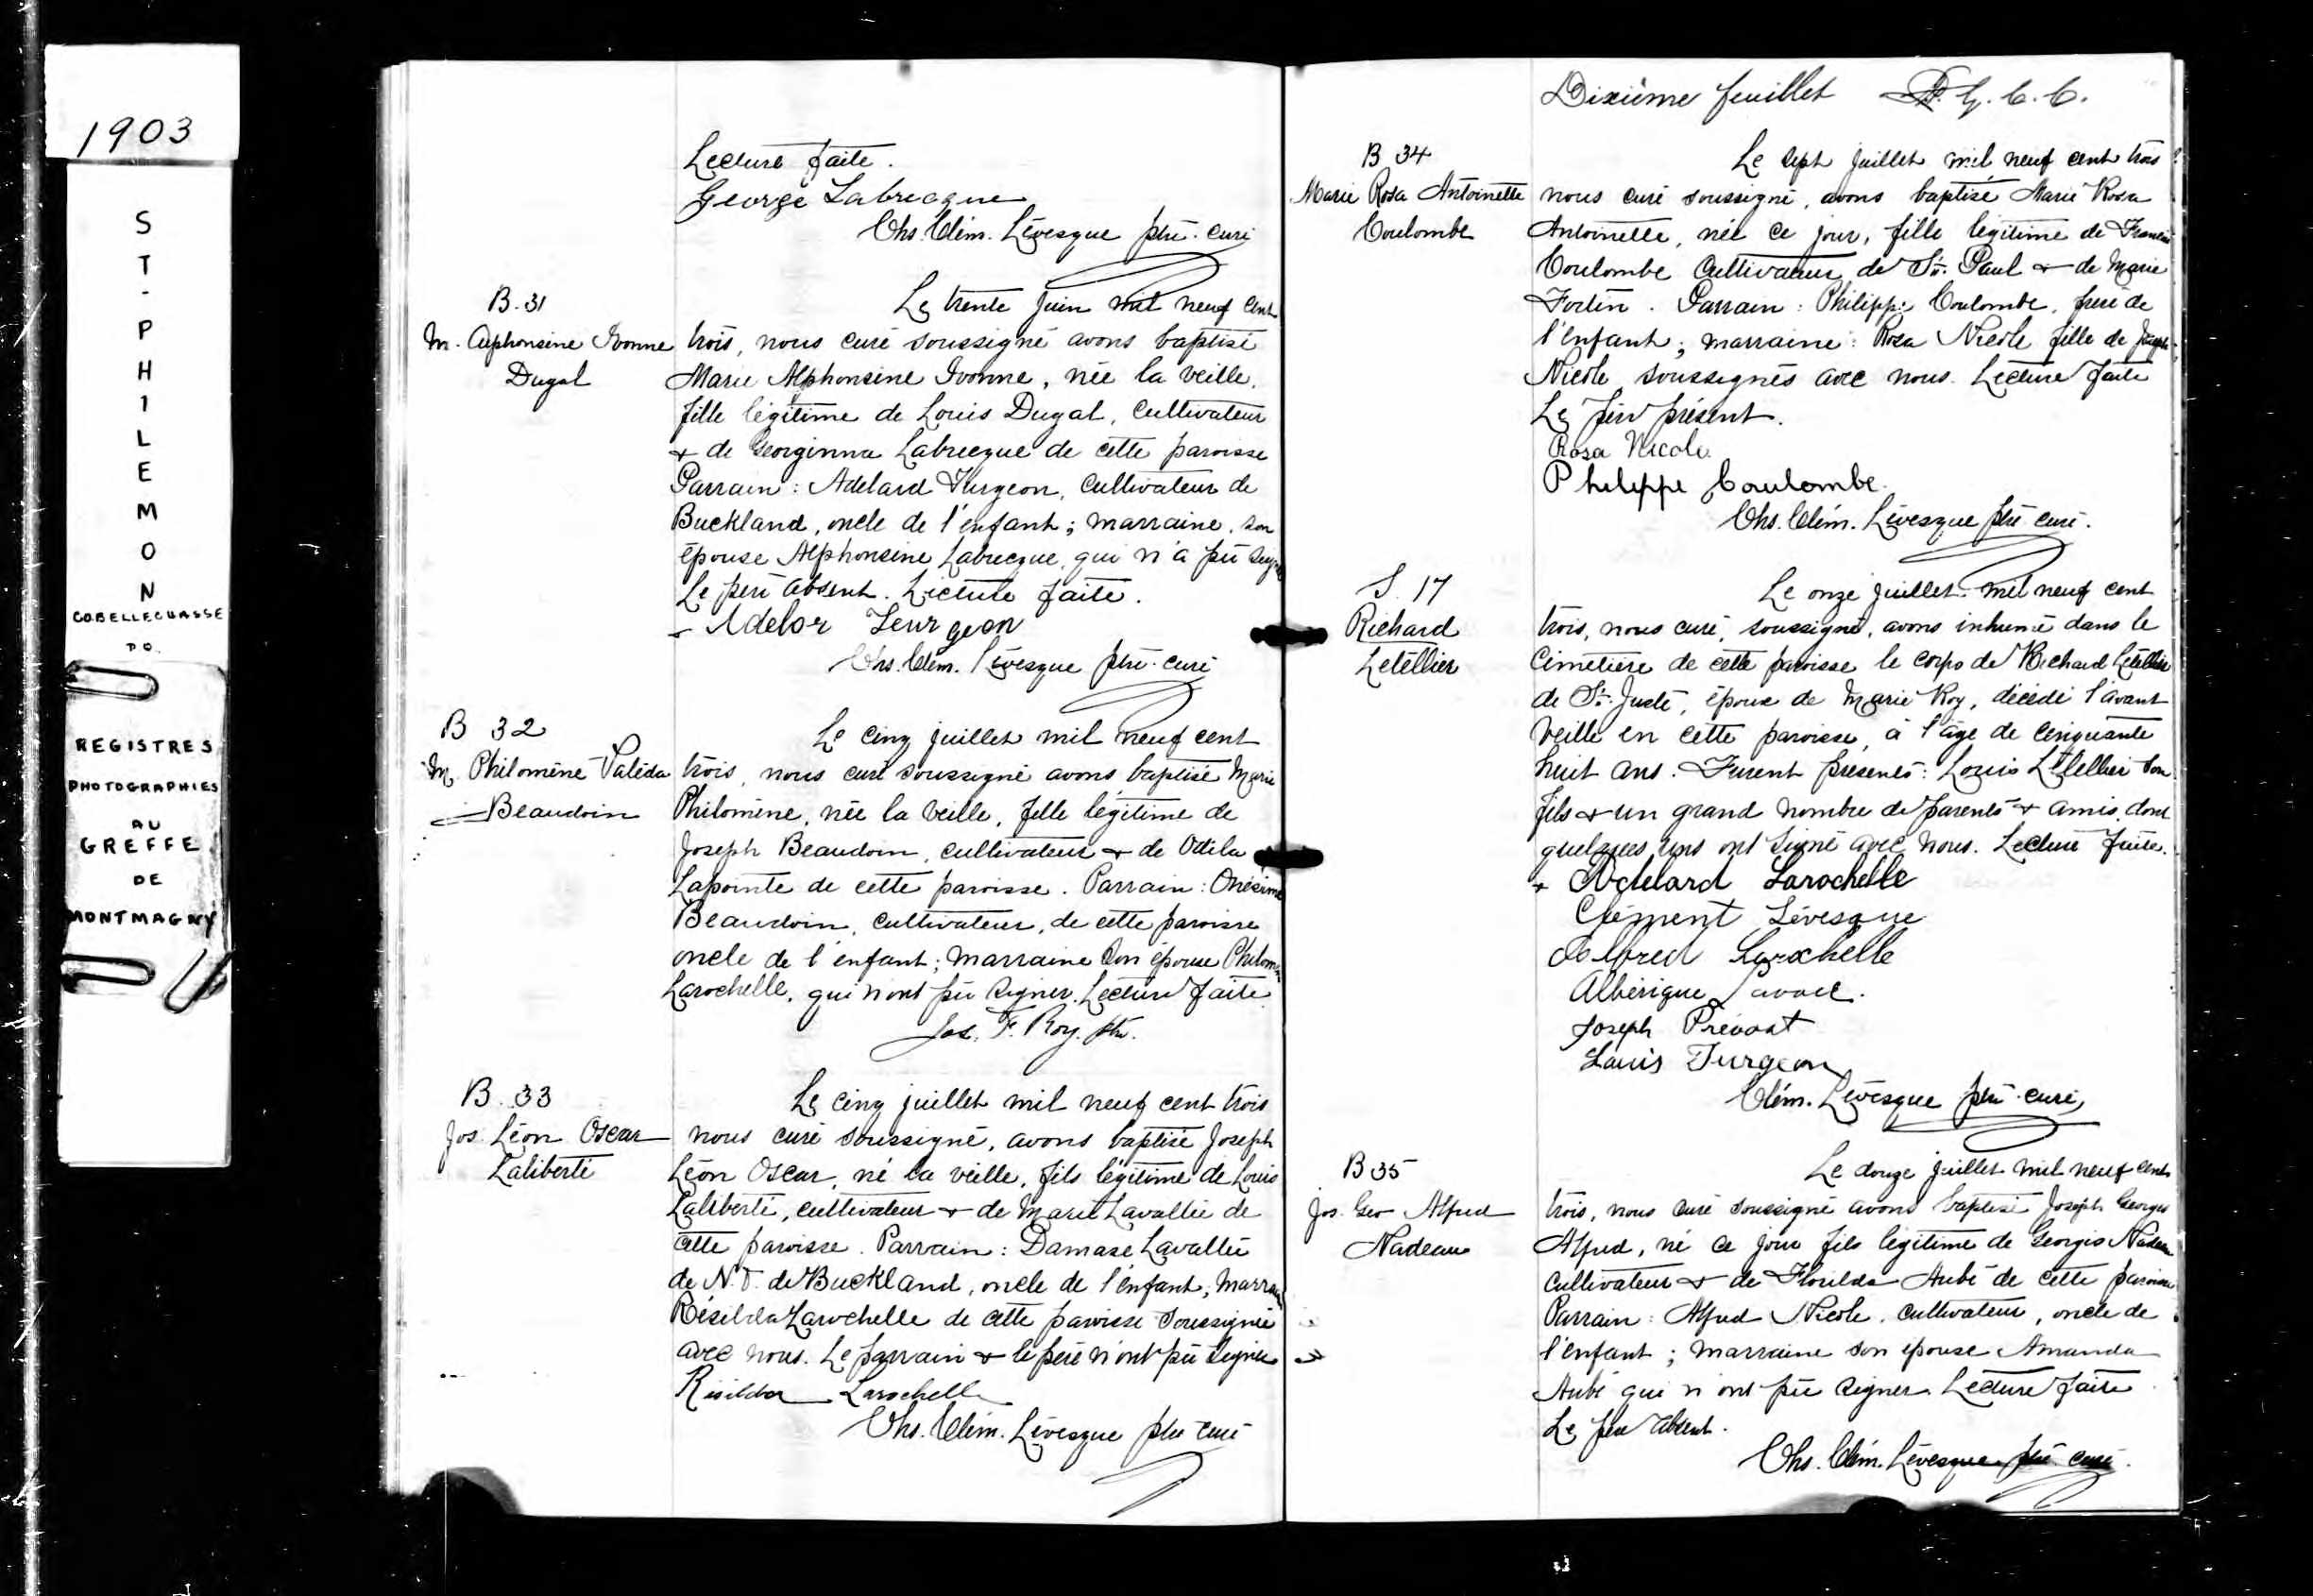 1903
ST-PHILEMON
CO BELLECHASSE
P.Q.
REGISTRES
PHOTOGRAPHIES
AU
GREFFE
DE
MONTMAGNY
Lecture faite.
George Labrecque
Chs. Clém. Lévesque ptre. curé
B. 31
M. Alphonsine Ivonne
Dugal
Le trente juin mil neuf cent
trois, nous curé soussigné avons baptisé
Marie Alphonsine Ivonne, née la veille,
fille légitime de Louis Dugal, cultivateur
& de Georginna Labrecque de cette paroisse
Parrain : Adelard Turgeon, cultivateur de
Buckland, oncle de l'enfant ; marraine, son
épouse Alphonsine Labrecque, qui n'a pu
Le père absent. Lecture faite.
Adelor
Chs. Clém. Lévesque ptre. curé
B 32
M. Philomène Valéda
Beaudoin
Le cinq juillet mil neuf cent
trois, nous curé soussigné avons baptisé Marie
Philomène, née la veille, fille légitime de
Joseph Beaudoin, cultivateur & de Odila
Lapointe de cette paroisse. Parrain : Onésime
Beaudoin, cultivateur, de cette paroisse
oncle de l'enfant ; marraine son épouse
Larochelle, qui n'ont pu signer. Lecture faite
Jos. F. Roy. ptre.
B. 33
Jos. Léon Oscar
Laliberté
Le cinq juillet mil neuf cent trois
nous curé soussigné, avons baptisé Joseph
Léon Oscar, né la veille, fils légitime de Louis
Laliberté, cultivateur & de Marie Lavallée de
cette paroisse. Parrain : Damase Lavallée
de N. D. de Buckland, oncle de l'enfant ;
Résilda Larochelle de cette paroisse soussignée
avec nous. Le parrain & le père n'ont pu signer
Résilda Larochelle
Chs. Clém. Lévesque ptre curé
Dixième feuillet
B 34
Marie Rosa Antoinette
Coulombe
Le sept juillet mil neuf cent trois
nous curé soussigné, avons baptisé Marie Rosa
Antoinette, née ce jour, fille légitime de Francis
Coulombe cultivateur de St. Paul & de Marie
Fortin. Parrain : Philippe Coulombe, frère de
l'enfant ; marraine : Rosa Nicole fille de Joseph
Nicole soussignés avec nous. Lecture faite
Le père présent.
Rosa Nicole
Philippe Coulombe.
Chs. Clém. Lévesque ptre curé.
S. 17
Richard
Letellier
Le onze juillet mil neuf cent
trois, nous curé, soussigné, avons inhumé dans le
cimetière de cette paroisse le corps de Richard Letellier
de St. Juste, époux de Marie Roy, décédé l'avant
veille en cette paroisse, à l'âge de cinquante
huit ans. Furent présents : Louis Letellier son
fils & un grand nombre de parents & amis dont
quelques uns ont signé avec nous. Lecture faite.
+ Adelard Larochelle
Clément Lévesque
Alfred Larochelle
Albérique
Joseph Prévost
Louis Turgeon
Clém. Lévesque ptre. curé
B 35
Jos. Geo Alfred
Nadeau
Le douze juillet mil neuf cent
trois, nous curé soussigné avons baptisé Joseph Georges
Alfred, né ce jour fils légitime de Georges Nadeau
cultivateur & de Florilda Aubé de cette paroisse
Parrain : Alfred Nicole, cultivateur, oncle de
l'enfant ; marraine son épouse Amanda
Aubé qui n'ont pu signer. Lecture faite
Le père absent.
Chs. Clém. Lévesque ptre curé.